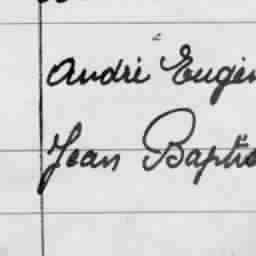 André Eugèn
Jean Baptis